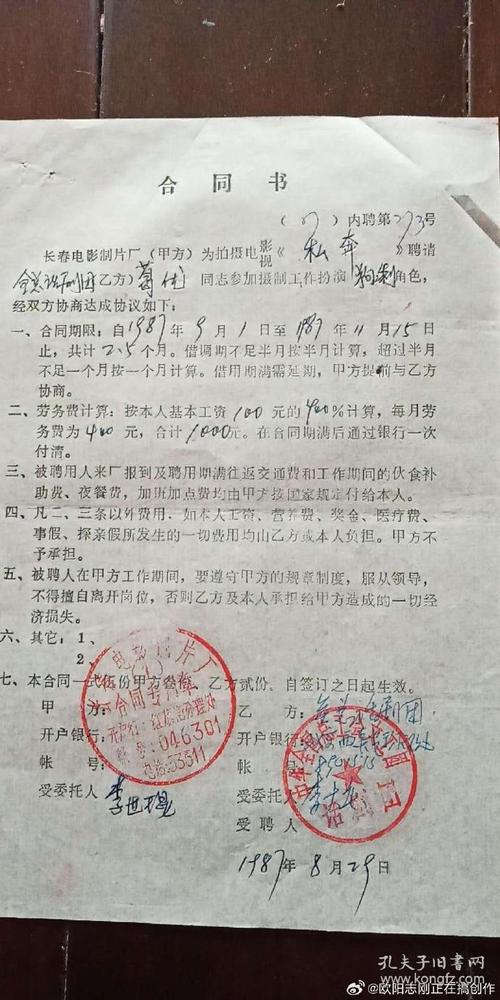 合同书
(87)内聘第273号
长春电影制片厂(甲方)为拍摄电影视《私奔》聘请
全总话剧团乙方)葛优 同志参加摄制工作扮演 角色,
经双方协商达成协议如下:
一、合同期限:自1987年9月1日至1987年11月15日
止,共计2.5个月。借调期不足半月按半月计算,超过半月
不足一个月按一个月计算。借用期满需延期,甲方提前与乙方
协商。
二、劳务费计算:按本人基本工资100元的400%计算,每月劳
务费为400元,合计1000元。在合同期满后通过银行一次
付清。
三、被聘用人来厂报到及聘用期满往返交通费和工作期间的伙食补
助费、夜餐费,加班加点费均由甲方按国家规定付给本人。
四、凡二、三条以外费用.如本人工资、营养费、奖金、医疗费、
事假、探亲假所发生的一切费用均由乙方或本人负担。甲方不
予承担。
五、被聘人在甲方工作期间,要遵守甲方的规章制度,服从领导,
不得擅自离开岗位,否则乙方及本人承担给甲方造成的一切经
济损失。
六、其它:1、
2、
七、本合同一式伍份甲方叁份,乙方贰份。自签订之日起生效。
甲方: 乙方:
开户银行: 开户银行:
帐号: 帐号:
受委托人 受委托人
受聘人
电影制片厂
合同专用章
开户行:红旗街办理处
帐号:046301
电话:53311
话剧团
1987年8月29日
孔夫子旧书网
@欧阳志刚正在搞创作